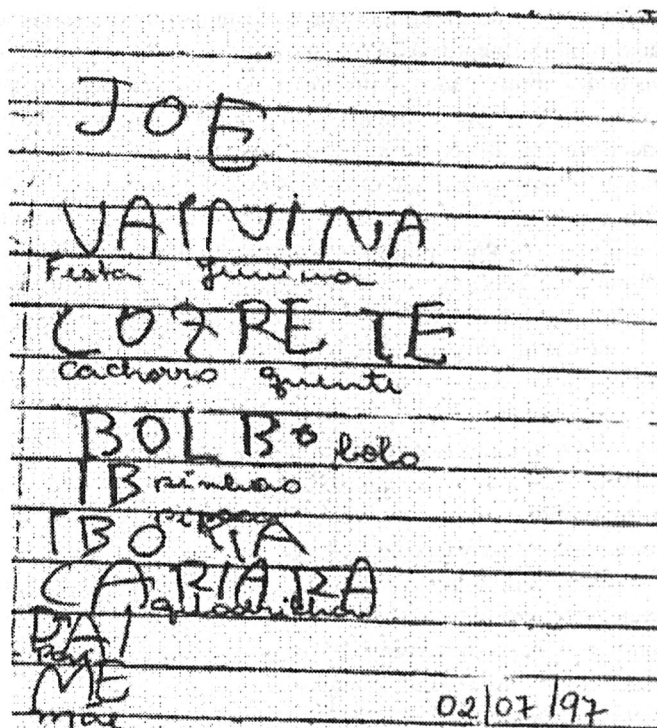 JOE
VAININA
Festa Junina
COZRETE
cachorro quente
BOLBO bolo
TB
pipoca
TBOKA
CARIARA
quadrilha
PAI
Pai
ME
mãe
02/07/97